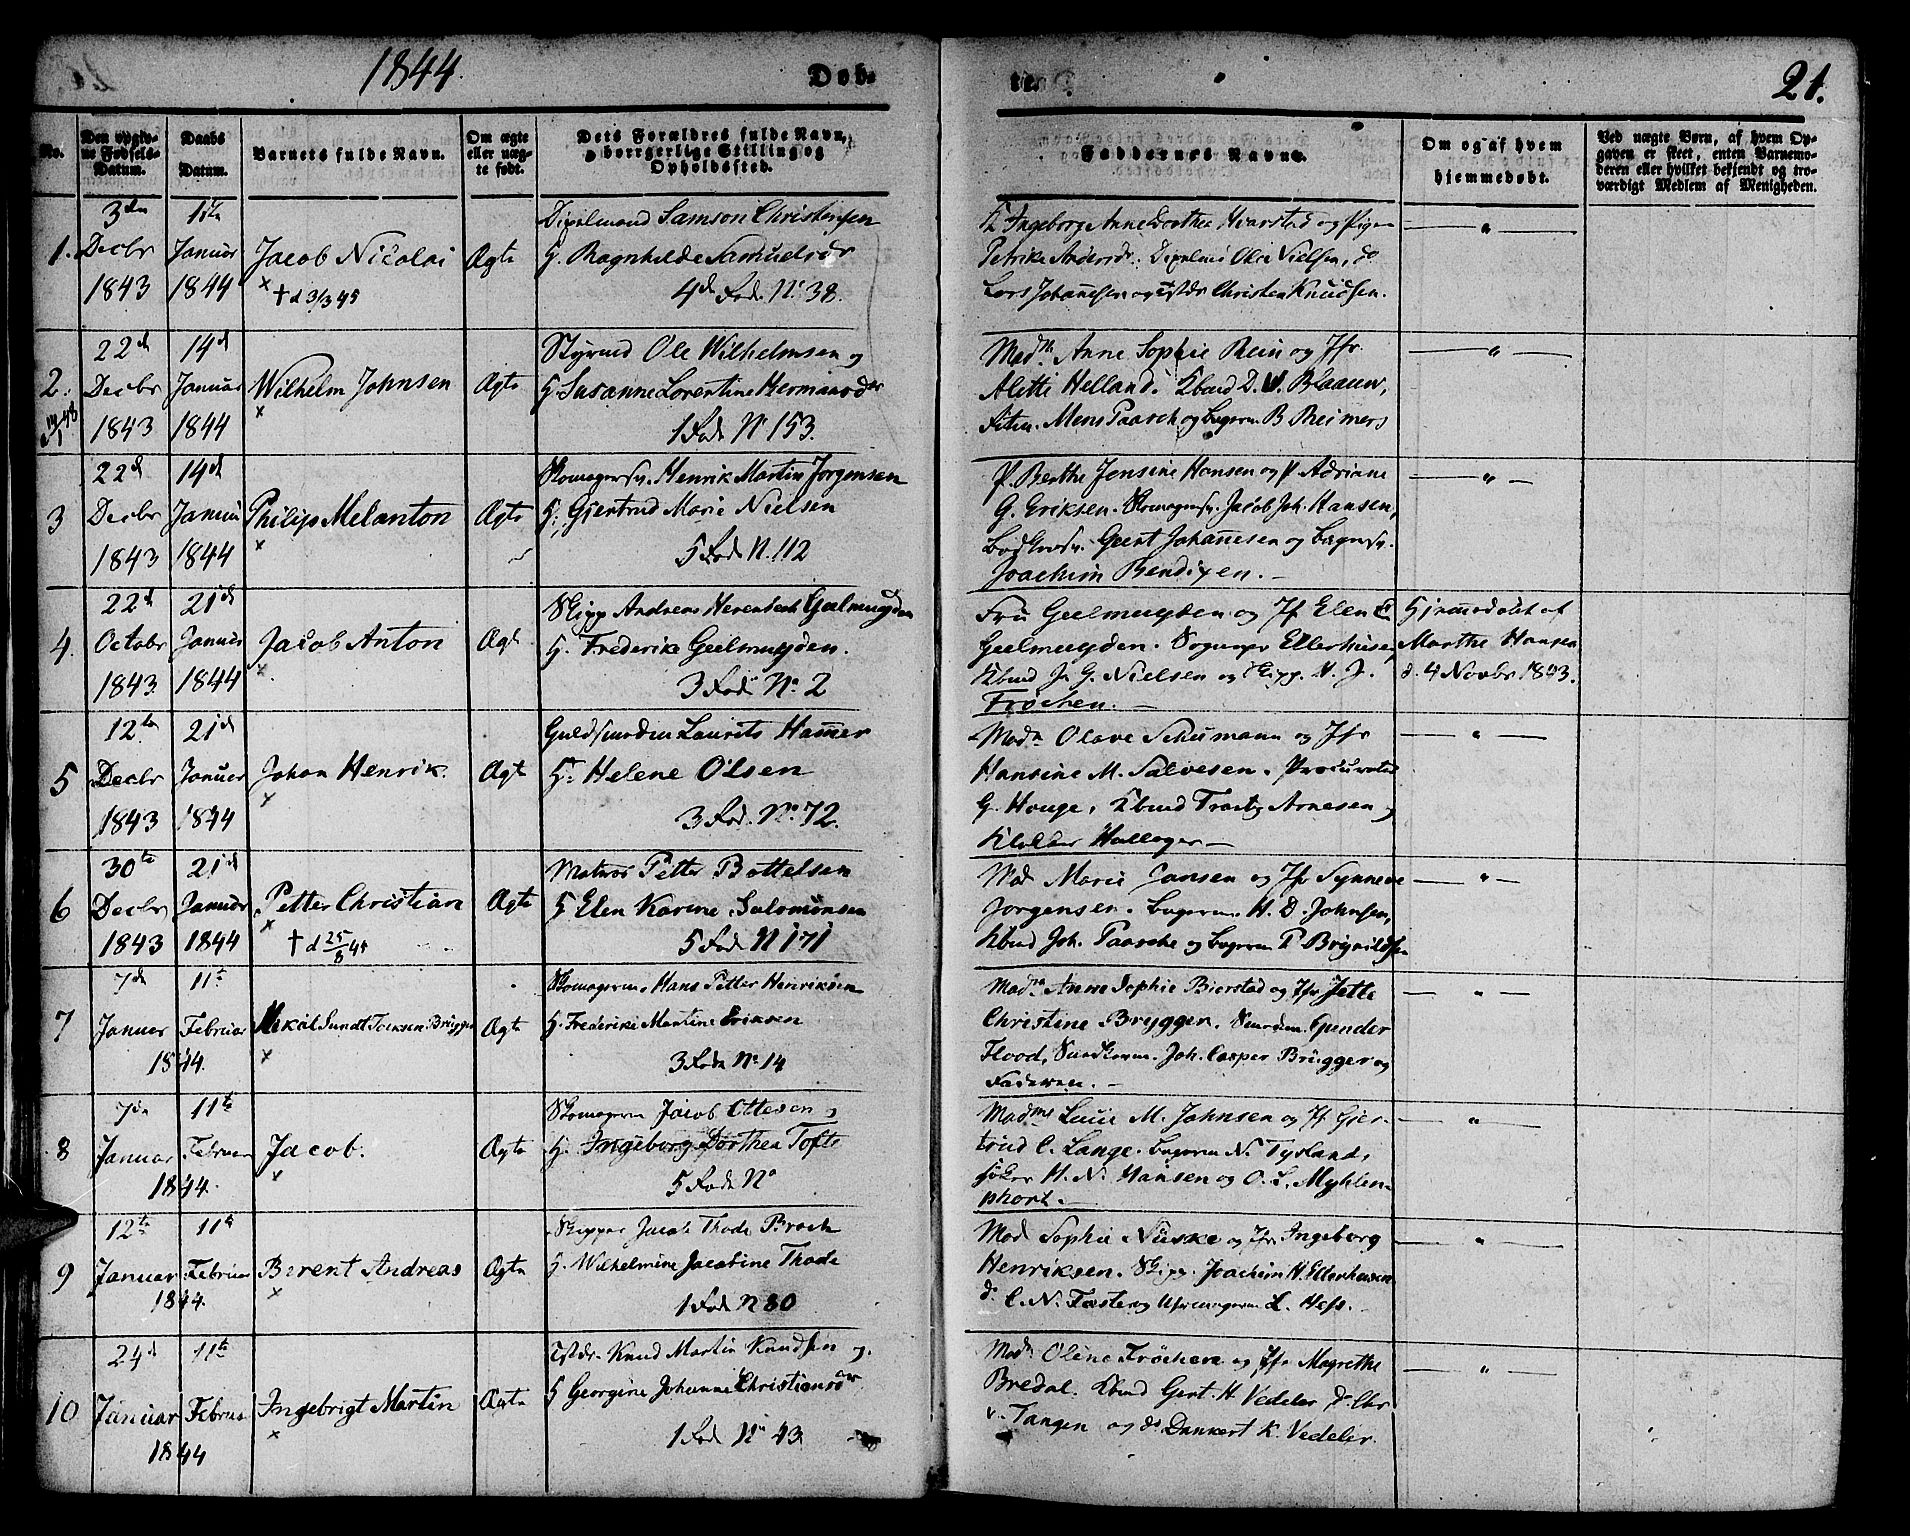 1844
Døb-
te.
21.
No.
Den opgiv-
ne Fødsels-
Datum.
Daabs
Datum.
Barnets fulde Navn.
Om ægte
eller uæg-
te født.
Dets Forældres fulde Navn,
borrgerlige Stilling og
Opholdssted.
Faddernes Navne.
Om og af hvem
hjemmedøbt.
Ved uægte Børn, af hvem Op-
gaven er skeet, enten Barnemo-
deren eller hvilket bekjendt og tro-
værdigt Medlem af Menigheden.
1.
3die
Decbr
1843
1ste
Januar
1844
Jacob Nicolai
× † d 3/3 45
Ægte
Samson Christensen
H. Ragnhilde Samuelsdr
4de Fode No 38.
K Ingeborg Anne Dorthea Hvarstad og Pigen
Petrike Andersdr. Olie Nielsen, do
Lars Johannesen og Christen Knudsen.
2.
22d
Decbr
1843
14d
Januar
1844
Wilhelm Johnsen
×
Ægte
Styrmd Ole Wilhelmsen og
H Susanne Lorentine Hermansdr
1 Fode No 153.
Madm Anne Sophie Rein og Jfr
Aletti Helland. Kbmd D. W. Blaauw,
Mens Paasch og Bagerm. B Reimers
3
22d
Decbr
1843
14d
Januar
1844
Philip Melanton
×
Ægte
Skomagersv. Henrik Martin Jørgensen
H. Gjertrud Marie Nielsen
5 Fode N. 112
P. Berthe Jensine Hansen og P. Adriane
G. Eriksen. Skomagersv. Jacob Joh. Hansen,
Geert Johannesen og Bagersv.
Joachim Bendixen.
4.
22d
October
1843.
21d
Januar
1844
Jacob Anton
×
Ægte
Skipp Andreas Herenbeck Geelmuyden
H. Frederike Geelmuyden.
3 Fode No. 2
Fru Geelmuyden og Jf Elen E
Geelmuyden. Sogneprs Ellerhusen,
Kbmd J. G. Nielsen og Skipp. H. J.
Frøchen.
Hjemmedøbt af
Marthe Hansen
d. 4 Novbr 1843.
5
12te
Decbr
1843
21d
Januar
1844
Johan Henrik.
×
Ægte
Guldsmeden Laurits Hammer
H. Helene Olsen
3 Fod. No. 72.
Madm Olave Schumann og Jfr
Hansine M. Salvesen. Procurator
G. Houge, Kbmd Arnesen og
Klokker Hallager
6
30te
Decbr
1843
21d
Januar
1844
Petter Christian
× † d 25/8 45
Ægte
Matros Petter Bottelsen
H Elen Karine Salomonsen
5 Fode N 171
Mad Marie Jansen og Jfr Synneve
Jørgensen. Bagerm. H. D. Johnsen,
Kbmd Joh. Paasche og Bagerm P Brynildsen
7
7de
Januar
1844.
11te
Februar
Mikal Sundt Brügger
×
Ægte
Skomagerm. Hans Petter Henriksen
H. Frederike Martine Eriksen
3 Fode No 14
Madm Anne Sophie Bierstad og Jfr Jette
Christine Brygger.
Flood, Joh. Casper Brügger og
Faderen.
8
7de
Januar
1844.
11te
Februar
Jacob.
×
Ægte
Skomagerm Jacob Ottesen og
H. Ingeborg Dorthea Tofte
5 Fode No
Madme M. Johnsen og Jf Gjer-
trud C. Lange. Bagerm N. Tysland,
H. N. Hansen og O. L. Myhlen-
phort.
9
12te
Januar
1844.
11te
Februar
Berent Andreas
×
Ægte
Skipper Jacob Thode Broch
H. Wilhelmine Jacobine Thode
1 Fode N 80
Mad Sophie Niiske og Jfr Ingeborg
Henriksen. Skipp. Joachim H. Ellerhusen
do C. N. Faste og L. Hess.
10
24d
Januar
1844
11te
Februar
Ingebrigt Martin
×
Ægte
Knud Martin Knudsen og
H Georgine Johanne Christiansdr
1 Fode No 43
Madm Oline Frøchen og Jfr Magrethe
Bredal. Kbmd Gert. H Vedeler, do Chr
v. Tangen og do Dankert K. Vedeler.